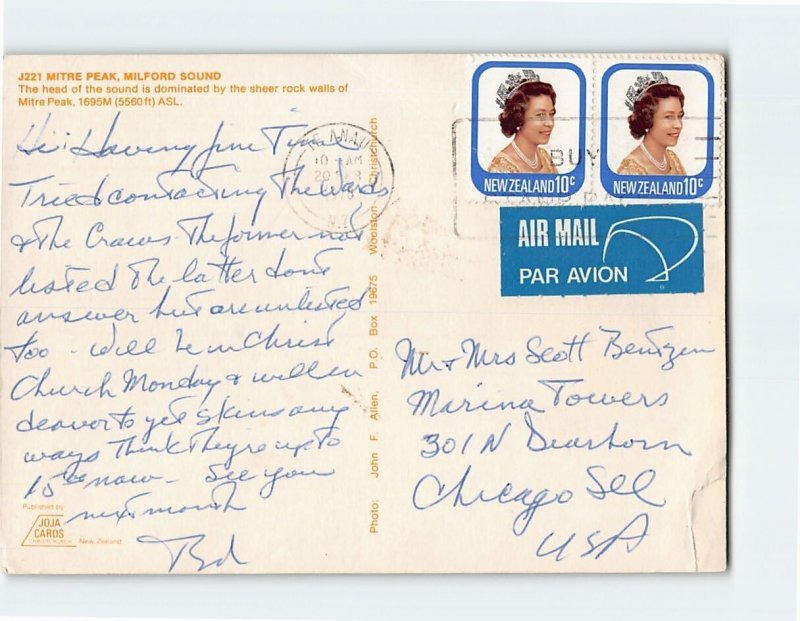 J221 MITRE PEAK, MILFORD SOUND
The head of the sound is dominated by the sheer rock walls of
Mitre Peak, 1695M (5560ft) ASL.
Hi: Having fine Time
Tried contacting The Wards
& The Craws. The former not
listed The latter dont
answer but are unlisted
too - will be in Christ
Church Monday & will en
deavor to get skins any
ways Think They're up to
15 now - See you
next month
Published by
JOJA
CARDS
CHRISTCHURCH
New Zealand
Photo: John F. Allen, P.O. Box 19675 Woolston Christchurch
TE ANAU
10 - AM
N.Z.
BUY
NEW ZEALAND 10c
NEW ZEALAND 10c
AIR MAIL
PAR AVION
Mr & Mrs Scott Bentzen
Marina Towers
301 N Dearborn
Chicago Ill
USA